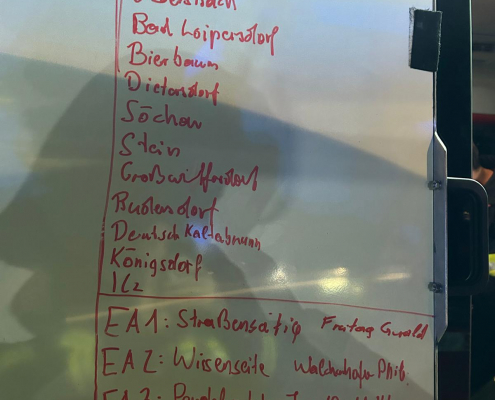 Bad Loipersdorf
Bierbaum
Dietersdorf
Söchau
Stein
Großwilfersdorf
Rudersdorf
Deutsch Kaltenbrunn
Königsdorf
ILZ
EA1: Straßenseitig Freitag Gerald
EA2: Wiesenseite